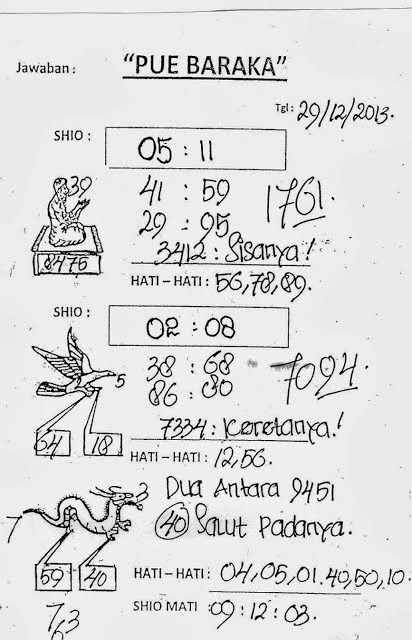 Jawaban : "PUE BARAKA"
Tgl : 29/12/2013.
SHIO : 05 : 11
39
41 : 59
1761.
29 : 95
8475
3412 : Sisanya !
HATI – HATI : 56,78,89.
SHIO : 02 : 08
38 : 68
5
86 : 80
7094.
7334 : Keretanya.!
64 18
HATI – HATI : 12,56.
3 Dua Antara 9451
7 40 Salut Padanya.
59 40
HATI – HATI : 04,05,01.40,50,10.
SHIO MATI : 09 : 12 : 03.
7,3
6